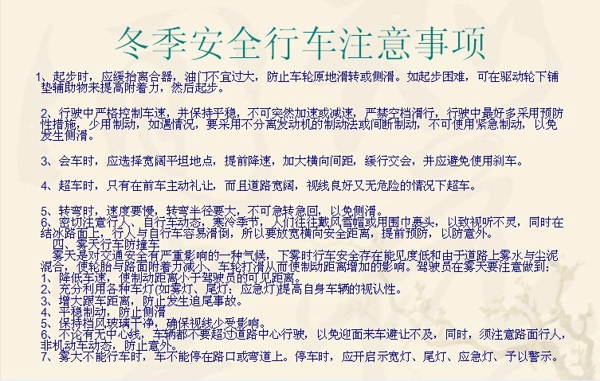 冬季安全行车注意事项
1、起步时，应缓抬离合器，油门不宜过大，防止车轮原地滑转或侧滑。如起步困难，可在驱动轮下铺
垫辅助物来提高附着力，然后起步。
2、行驶中严格控制车速，并保持平稳，不可突然加速或减速，严禁空档滑行，行驶中最好多采用预防
性措施，少用制动，如遇情况，要采用不分离发动机的制动法或间断制动，不可使用紧急制动，以免
发生侧滑。
3、会车时，应选择宽阔平坦地点，提前降速，加大横向间距，缓行交会，并应避免使用刹车。
4、超车时，只有在前车主动礼让，而且道路宽阔，视线良好又无危险的情况下超车。
5、转弯时，速度要慢，转弯半径要大，不可急转急回，以免侧滑。
6、密切注意行人、自行车动态，寒冷季节，人们往往戴风雪帽或用围巾裹头，以致视听不灵，同时在
结冰路面上，行人与自行车容易滑倒，所以要放宽横向安全距离，提前预防，以防意外。
四、雾天行车防撞车
雾天是对交通安全有严重影响的一种气候，下雾时行车安全存在能见度低和由于道路上雾水与尘泥
混合，使轮胎与路面附着力减小、车轮打滑从而使制动距离增加的影响。驾驶员在雾天要注意做到：
1、降低车速，使制动距离小于驾驶员的可见距离。
2、充分利用各种车灯(如雾灯、尾灯；应急灯)提高自身车辆的视认性。
3、增大跟车距离，防止发生追尾事故。
4、平稳制动，防止侧滑
5、保持档风玻璃干净，确保视线少受影响。
6、不论有无中心线，车辆都不要超过道路中心行驶，以免迎面来车避让不及，同时，须注意路面行人，
非机动车动态，防止意外。
7、雾大不能行车时，车不能停在路口或弯道上。停车时，应开启示宽灯、尾灯、应急灯、予以警示。